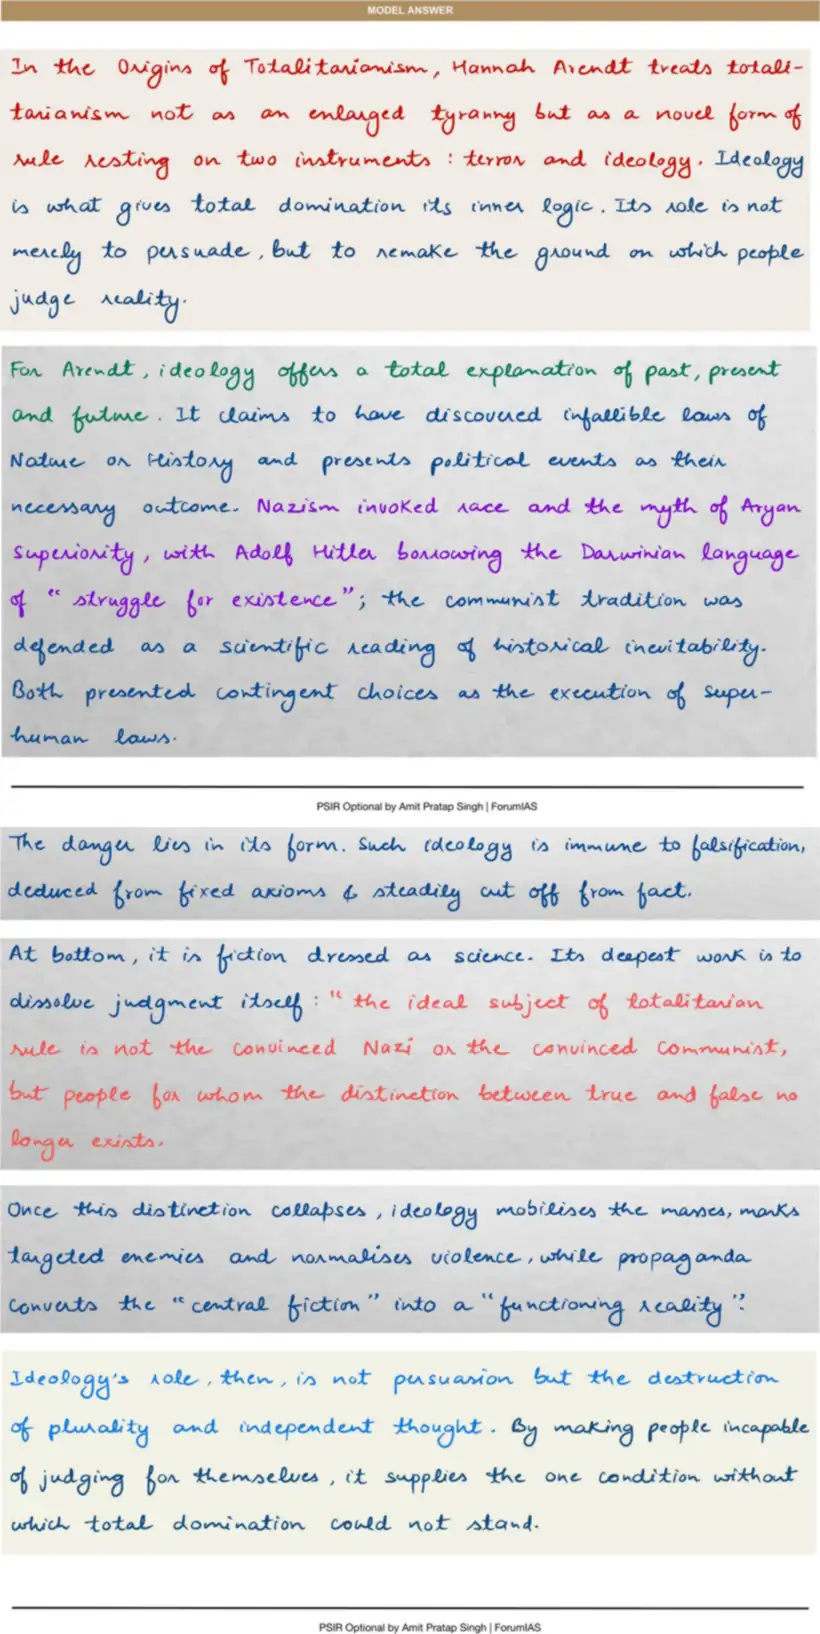 MODEL ANSWER
In the Origins of Totalitarianism, Hannah Arendt treats totali-
tarianism not as an enlarged tyranny but as a novel form of
rule resting on two instruments : terror and ideology. Ideology
is what gives total domination its inner logic. Its role is not
merely to persuade, but to remake the ground on which people
judge reality.
For Arendt, ideology offers a total explanation of past, present
and future. It claims to have discovered infallible laws of
Nature or History and presents political events as their
necessary outcome. Nazism invoked race and the myth of Aryan
Superiority, with Adolf Hitler borrowing the Darwinian language
of "struggle for existence"; the communist tradition was
defended as a scientific reading of historical inevitability.
Both presented contingent choices as the execution of super-
human laws.
PSIR Optional by Amit Pratap Singh | ForumIAS
The danger lies in its form. Such ideology is immune to falsification,
deduced from fixed axioms & steadily cut off from fact.
At bottom, it is fiction dressed as science. Its deepest work is to
dissolve judgment itself : "the ideal subject of totalitarian
rule is not the convinced Nazi or the convinced Communist,
but people for whom the distinction between true and false no
longer exists.
Once this distinction collapses, ideology mobilises the masses, marks
targeted enemies and normalises violence, while propaganda
converts the "central fiction" into a "functioning reality".
Ideology's role, then, is not persuasion but the destruction
of plurality and independent thought. By making people incapable
of judging for themselves, it supplies the one condition without
which total domination could not stand.
PSIR Optional by Amit Pratap Singh | ForumIAS